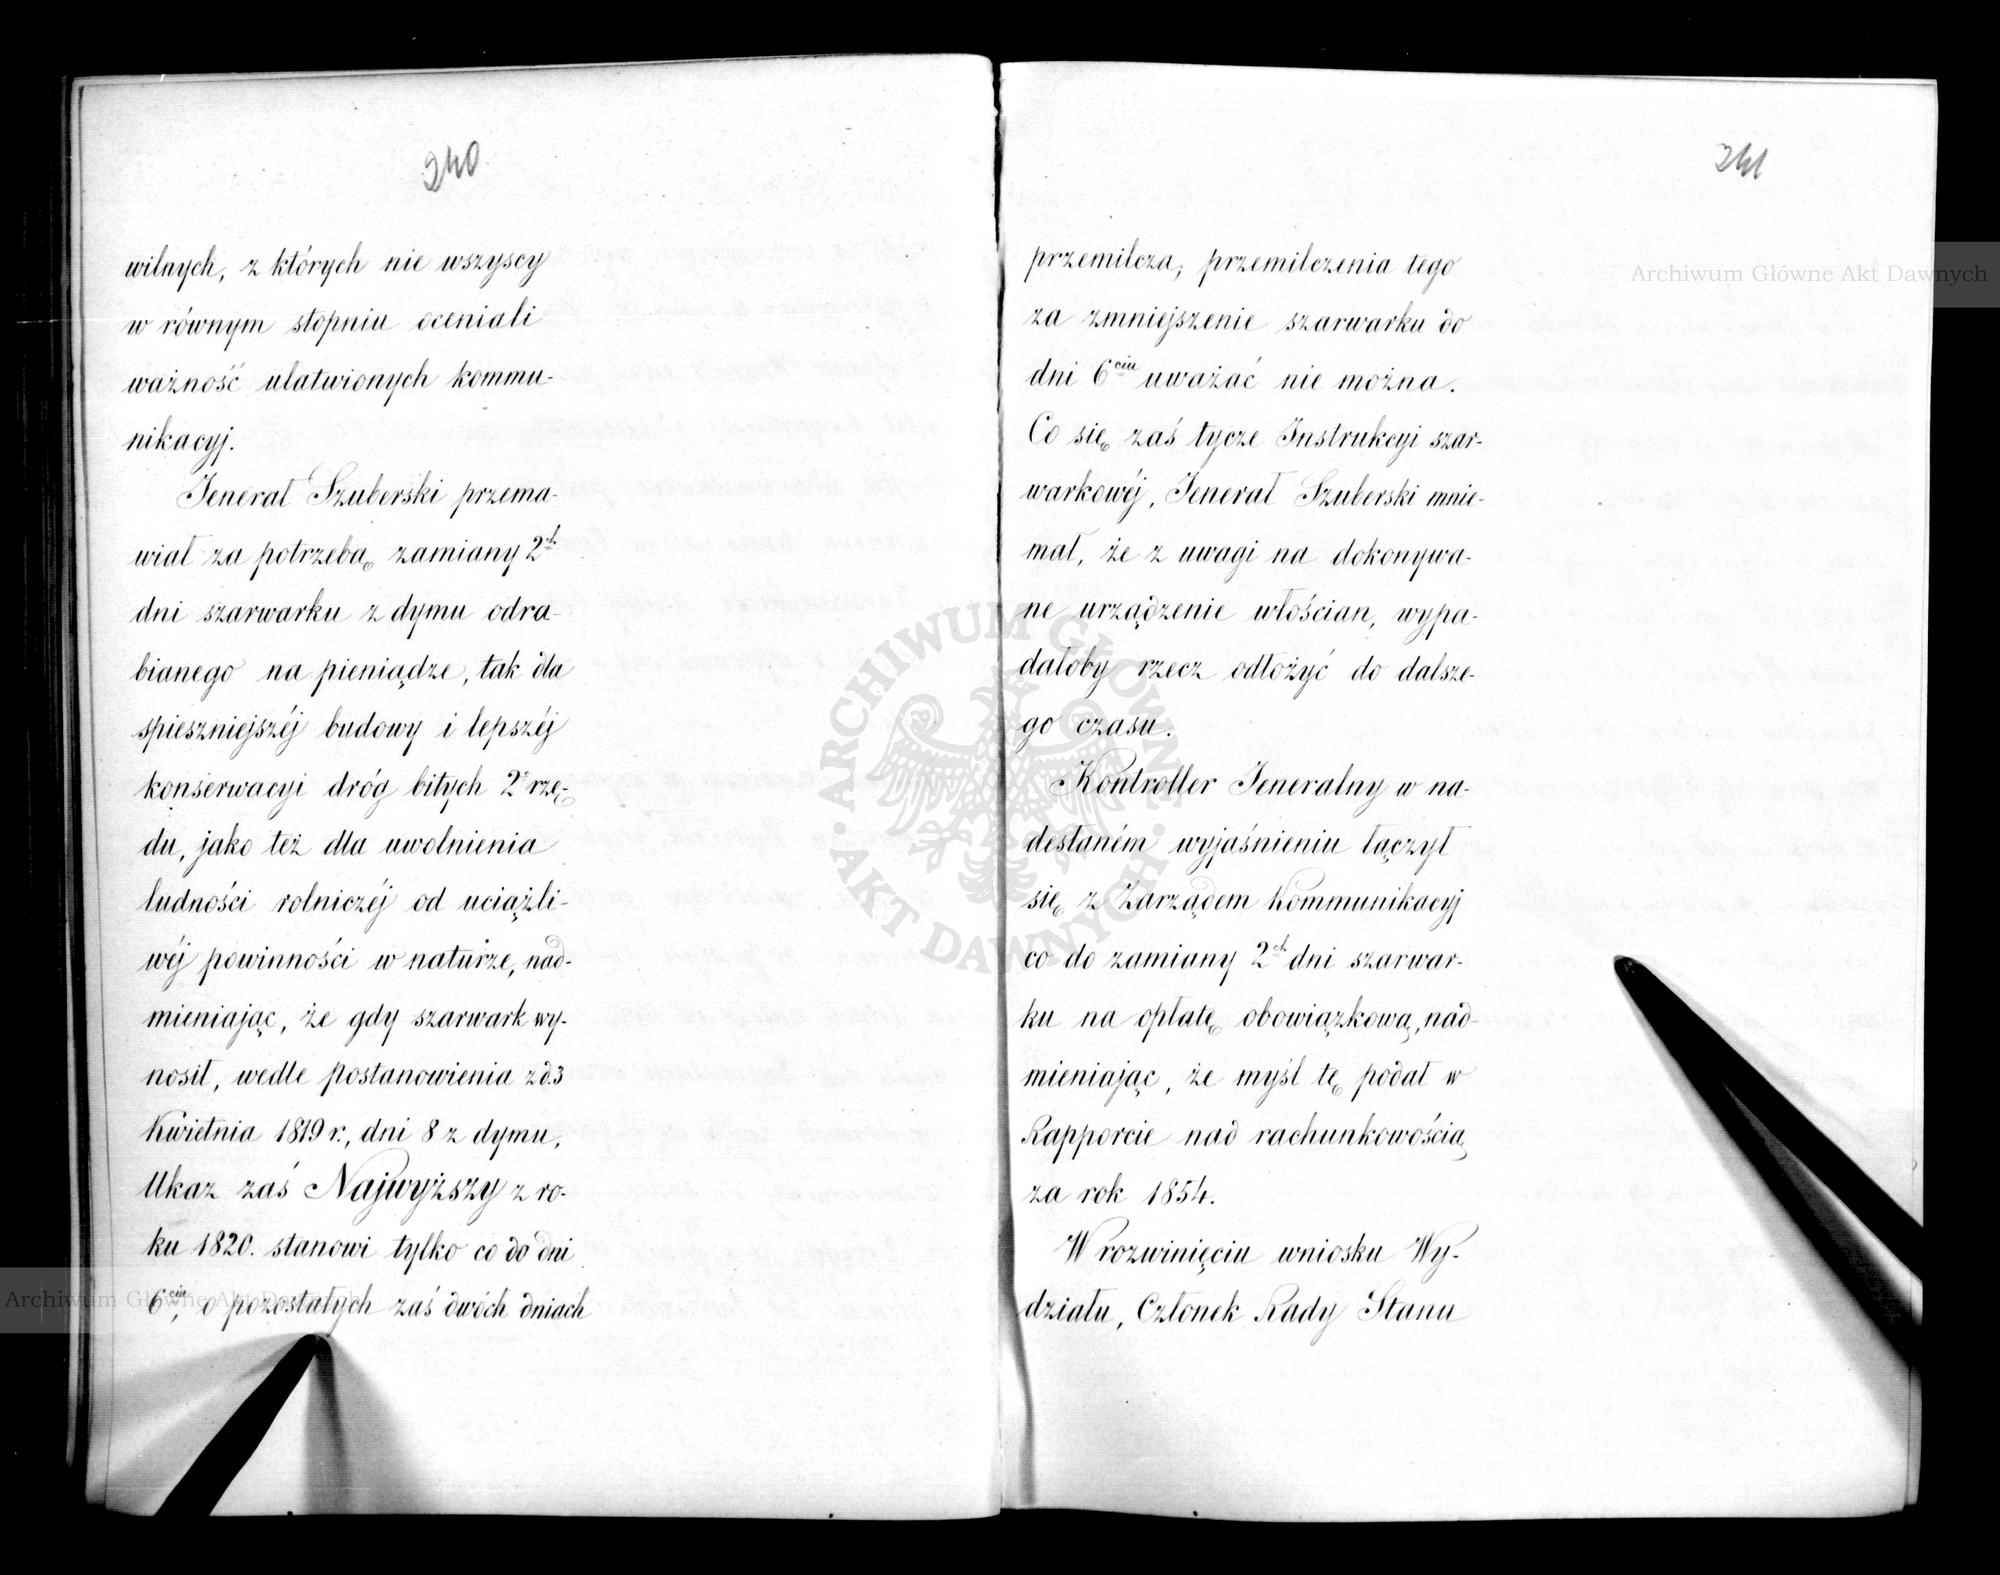 240
wilnych, z których nie wszyscy
w równym stopniu oceniali
ważność ułatwionych kommu-
nikacyj.
Jenerał Szuberski przema-
wiał za potrzebą zamiany 2ch
dni szarwarku z dymu odra-
bianego na pieniądze, tak dla
spieszniejszéj budowy i lepszéj
konserwacyi dróg bitych 2o rzę-
du, jako też dla uwolnienia
ludności rolniczéj od uciążli-
wéj powinności w naturze, nad-
mieniając, że gdy szarwark wy-
nosił, wedle postanowienia z d. 3
Kwietnia 1819 r., dni 8 z dymu,
Ukaz zaś Najwyższy z ro-
ku 1820. stanowi tylko co do dni
6ciu, o pozostałych zaś dwóch dniach
241
przemilcza; przemilczenia tego
za zmniejszenie szarwarku do
dni 6ciu uważać nie można.
Co się zaś tycze Instrukcyi szar-
warkowéj, Jenerał Szuberski mnie-
mał, że z uwagi na dokonywa-
ne urządzenie włościan, wypa-
dałoby rzecz odłożyć do dalsze-
go czasu.
Kontroller Jeneralny w na-
desłaném wyjaśnieniu łączył
się z Zarządem Kommunikacyj
co do zamiany 2ch dni szarwar-
ku na opłatę obowiązkową, nad-
mieniając, że myśl tę podał w
Rapporcie nad rachunkowością
za rok 1854.
W rozwinięciu wniosku Wy-
działu, Członek Rady Stanu
Archiwum Główne Akt Dawnych
Archiwum Główne Akt Dawnych
ARCHIWUM GŁÓWNE · AKT DAWNYCH ·